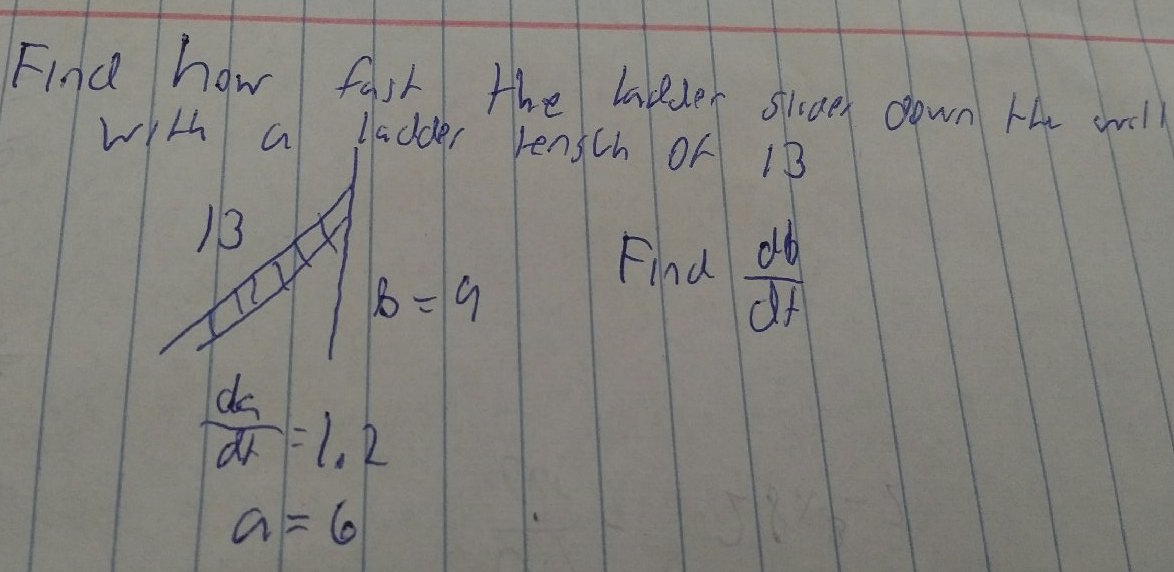 Find how fast the ladder slides down the wall
with a ladder length of 13
13
Find db/dt
B = 9
da/dt = 1.2
a = 6